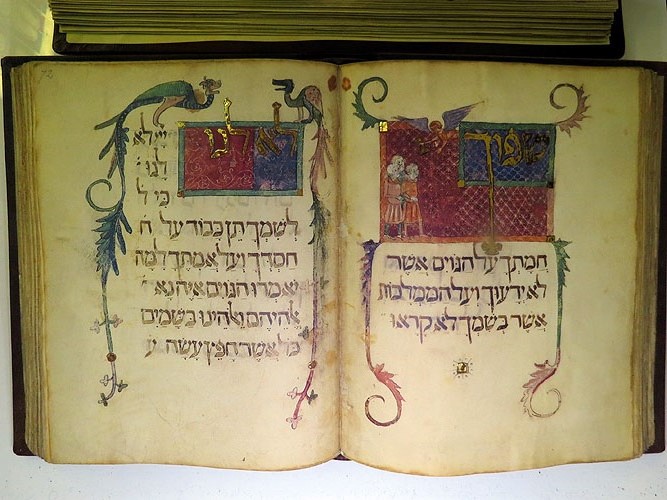 שפוך
חמתך על הגוים אשר
לא ידעוך ועל הממלכות
אשר בשמך לא קראו
לא לנו
יי לא
לנו
כי ל
לשמך תן כבוד על ח
חסדך ועל אמתך למה
יאמרו הגוים איה נא
אלהיהם ואלהינו בשמים
כל אשר חפץ עשה ע